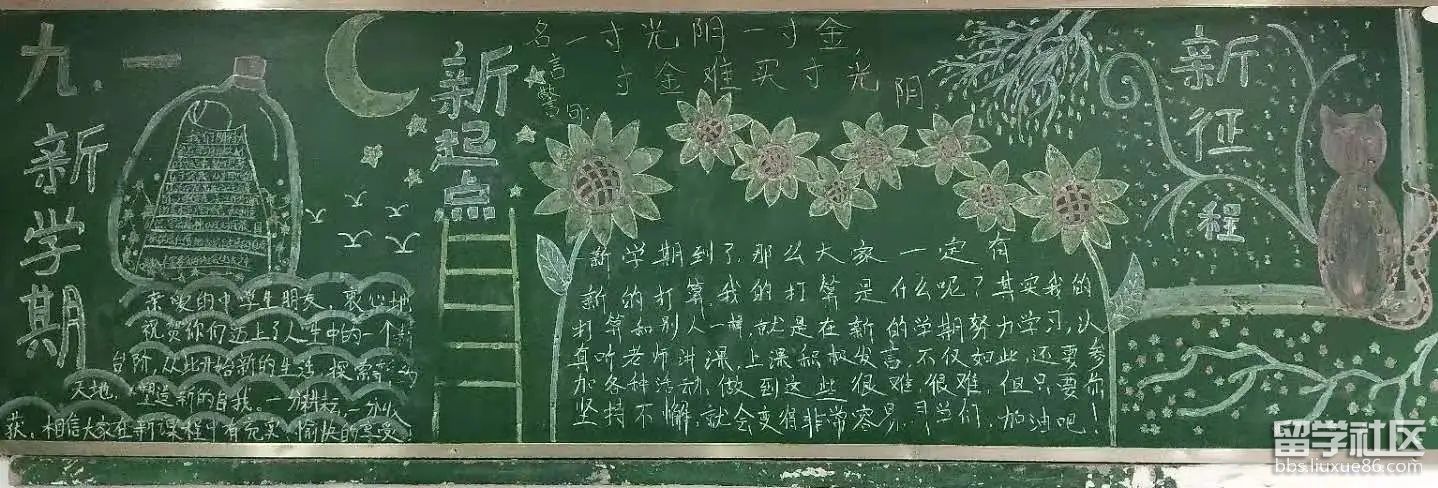 九.一
新学期
我们
新起点
名言警句
一寸光阴一寸金,
寸金难买寸光阴
新征程
亲爱的中学生朋友,衷心地
祝贺你们迈上了人生中的一个新
台阶,从此开始新的生活,探索新的
天地,塑造新的自我。一分耕耘,一分收
获,相信大家在新课程中有充实、愉快的享受
新学期到了,那么大家一定有
新的打算,我的打算是什么呢?其实我的
打算和别人一样,就是在新的学期努力学习,认
真听老师讲课,上课积极发言,不仅如此,还要参
加各种活动,做到这些很难,很难,但只要你
坚持不懈,就会变得非常容易,同学们,加油吧!
留学社区
bbs.liuxue86.com